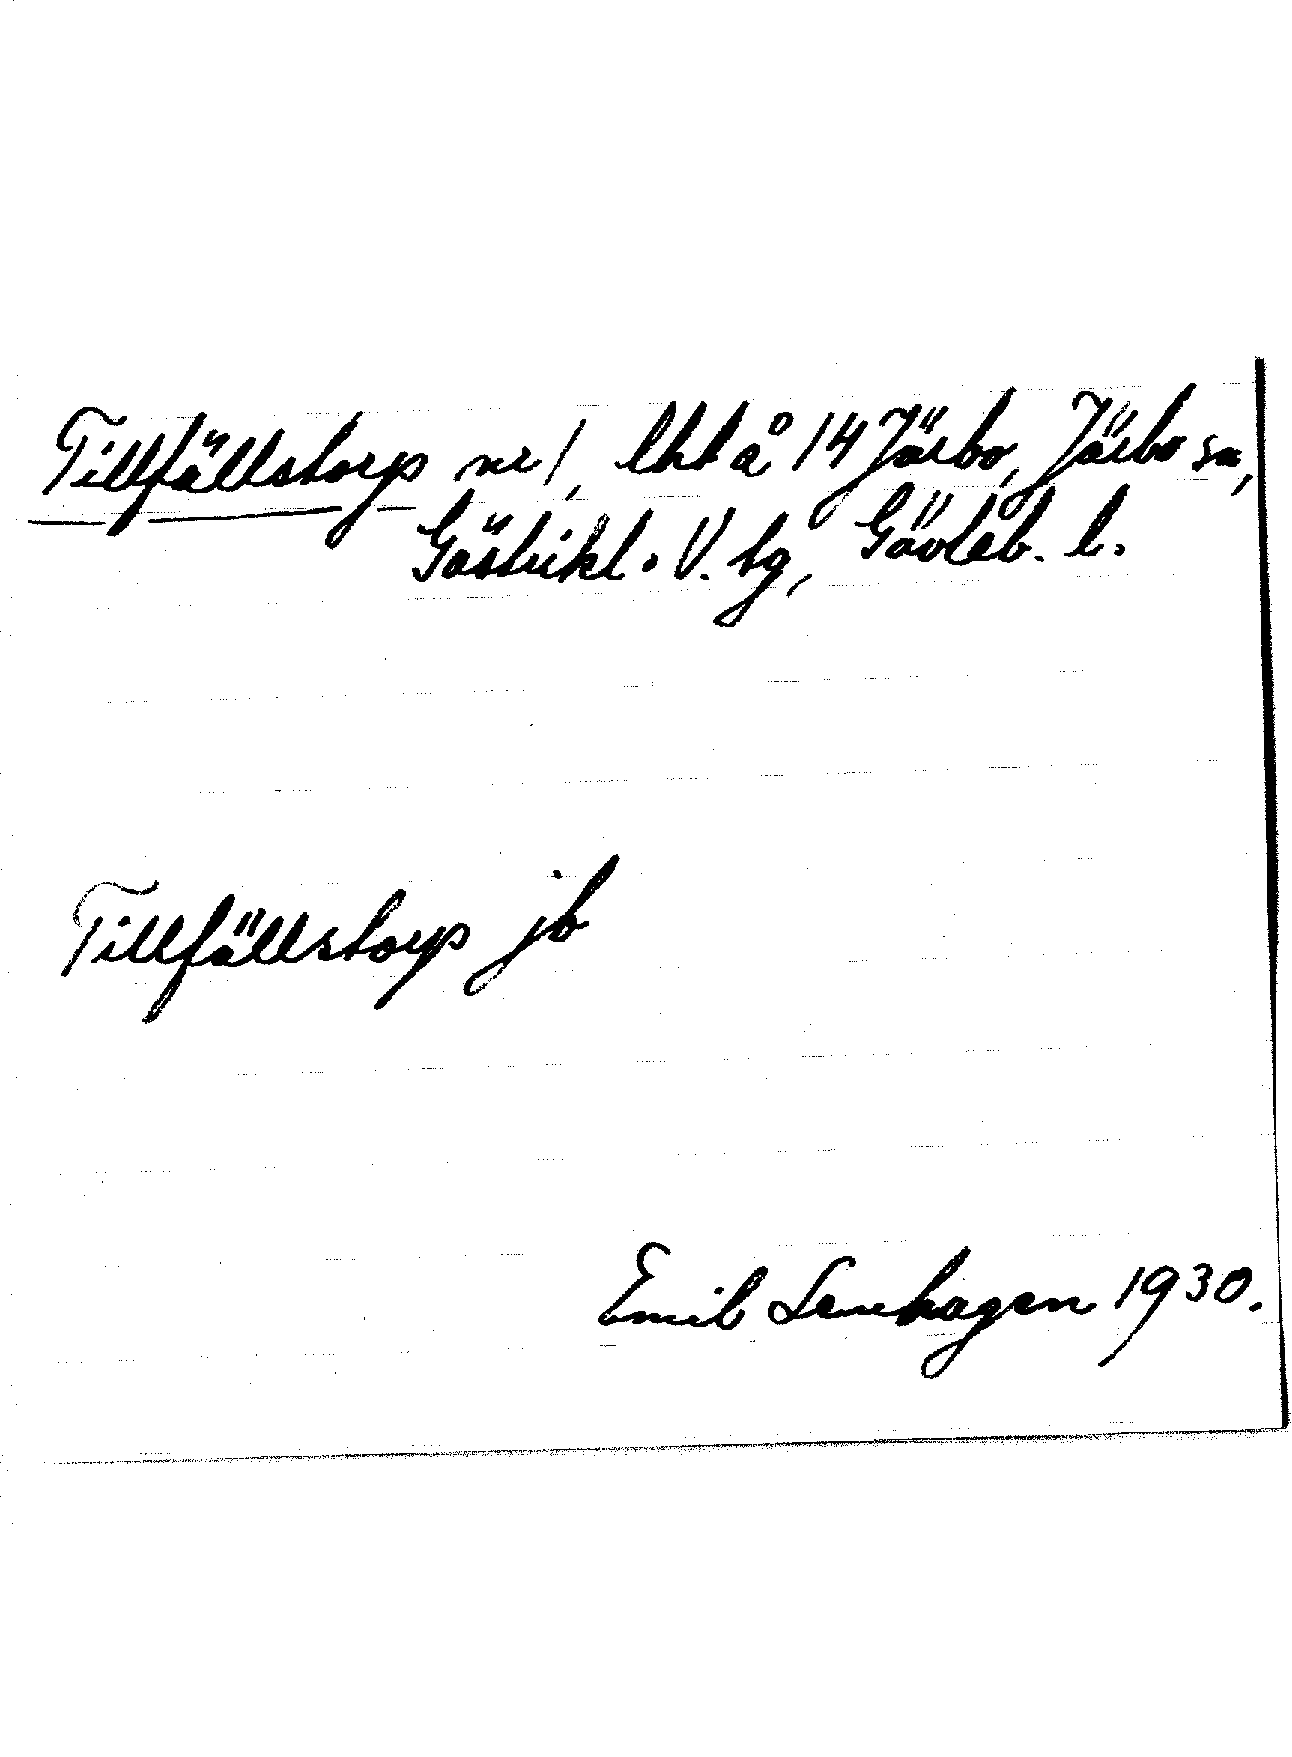 Tillfällstorp nr 1, lht å 14 Järbo, Järbo sn,
Gästrikl. V. tg, Gävleb. l.
Tillfällstorp jb
Emil Lenhagen 1930.